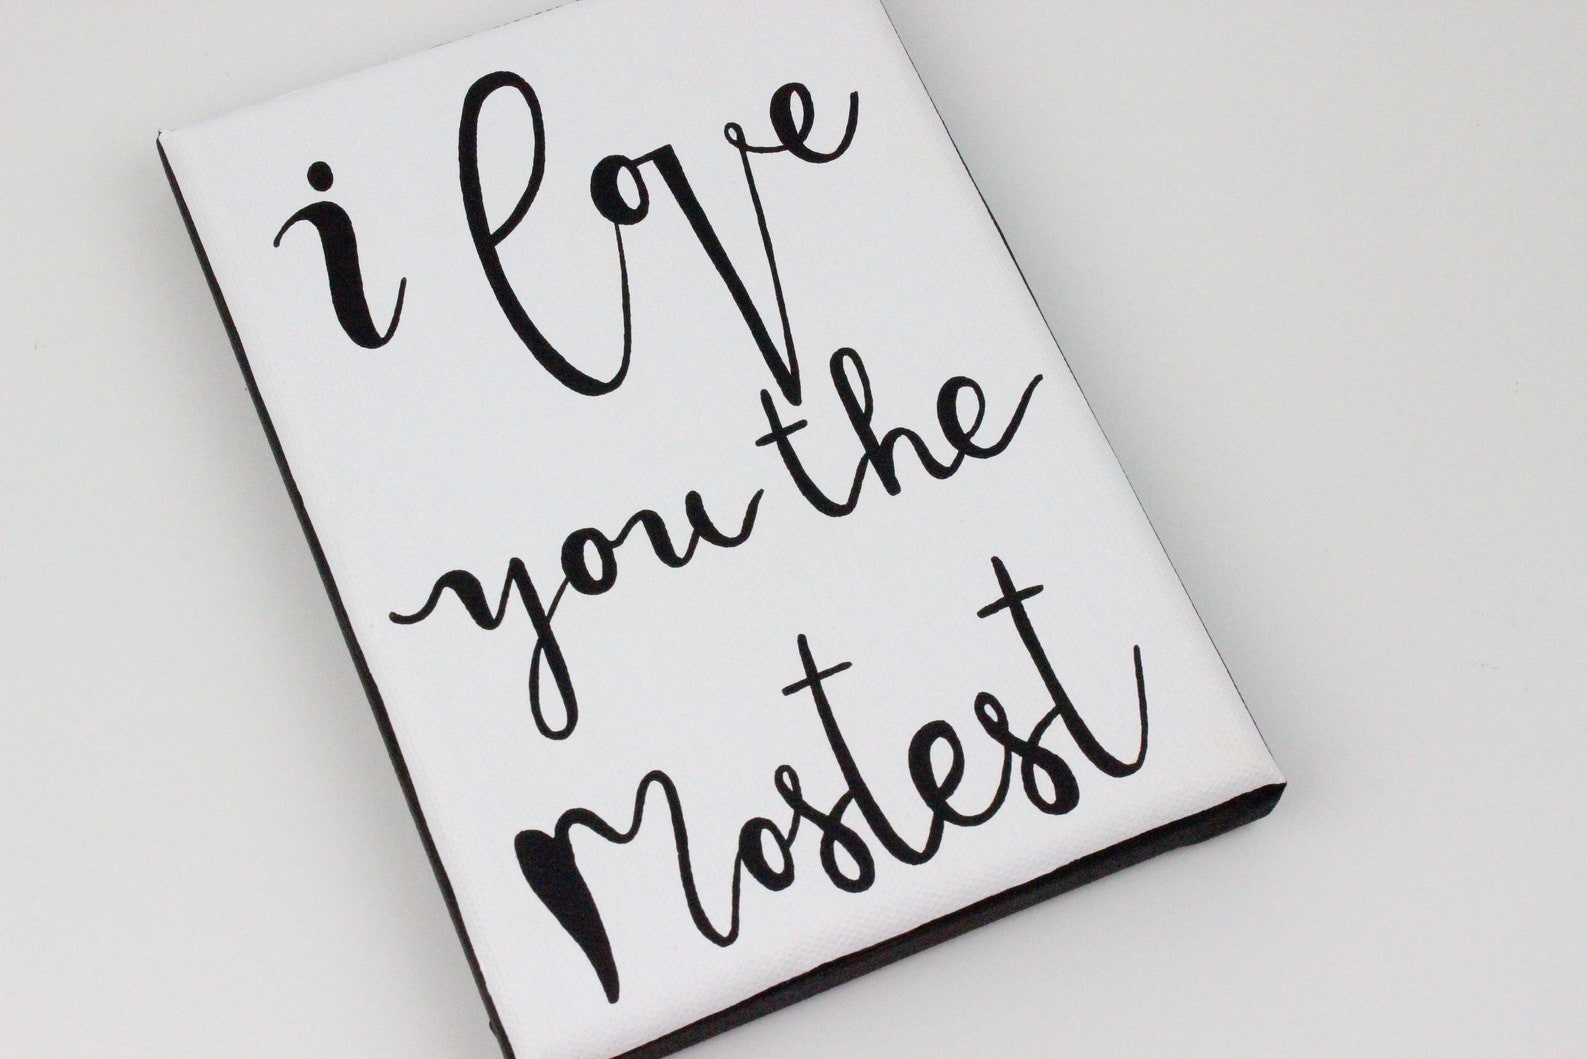 i love
you the
Mostest